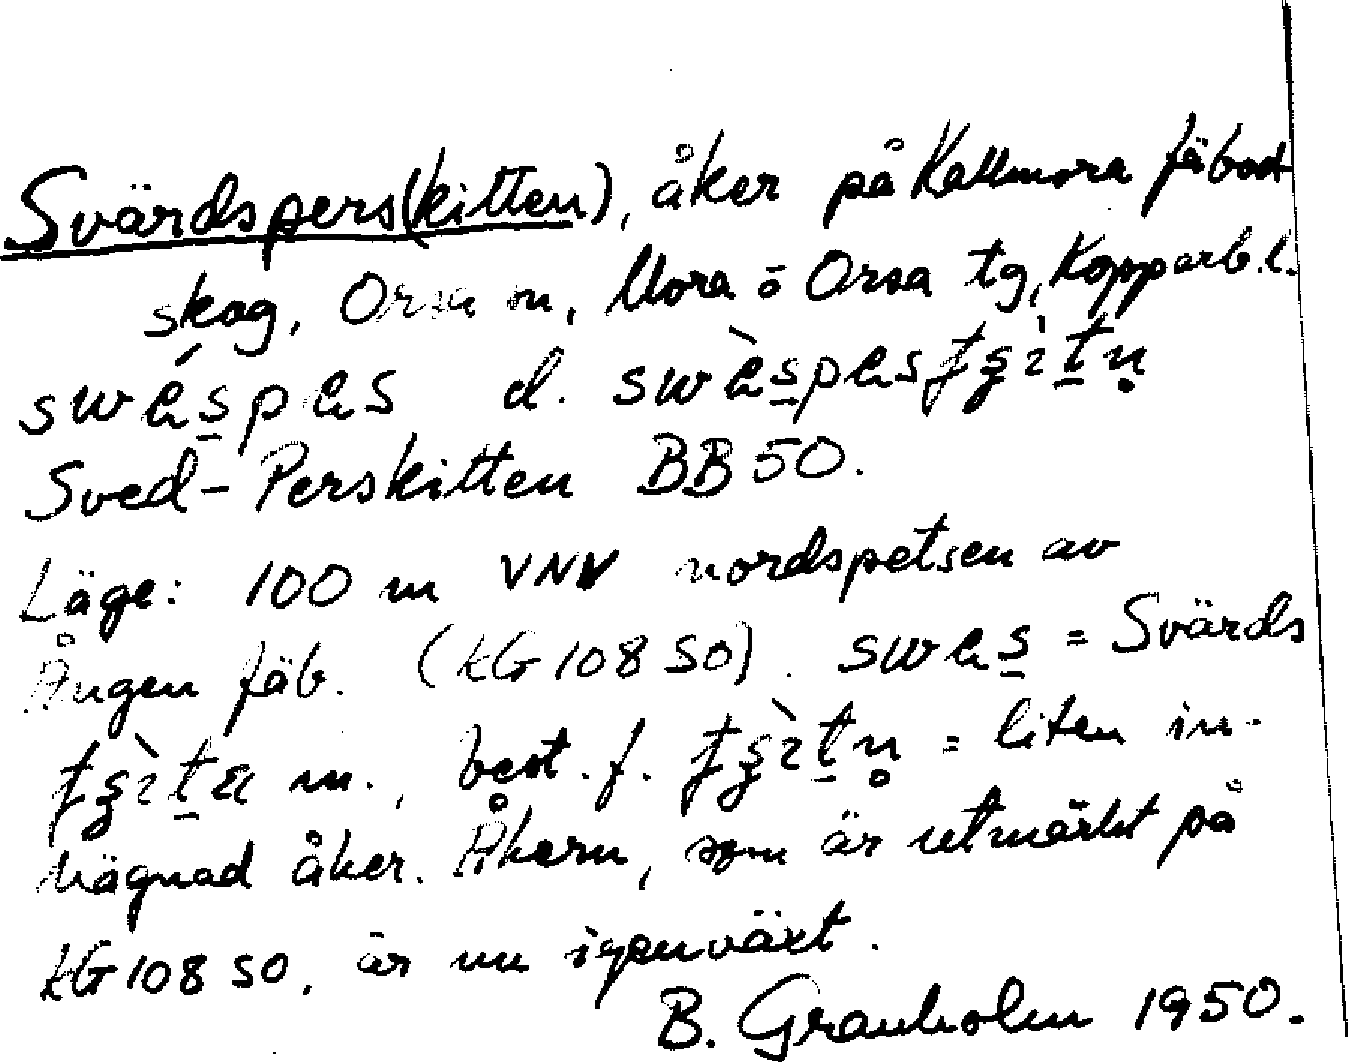 Svärdspers(kitten), åker på Kallmora fäbod-
skog, Orsa sn, Mora o Orsa tg, Kopparb. l.
d.
Sved-Perskitten BB 50.
Läge: 100 m VNV nordspetsen av
Ången fäb. (kG 108 SO). = Svärds
m., best. f. = liten in-
hägnad åker. Åkern, som är utmärkt på
kG 108 SO, är nu igenväxt.
B. Granholm 1950.